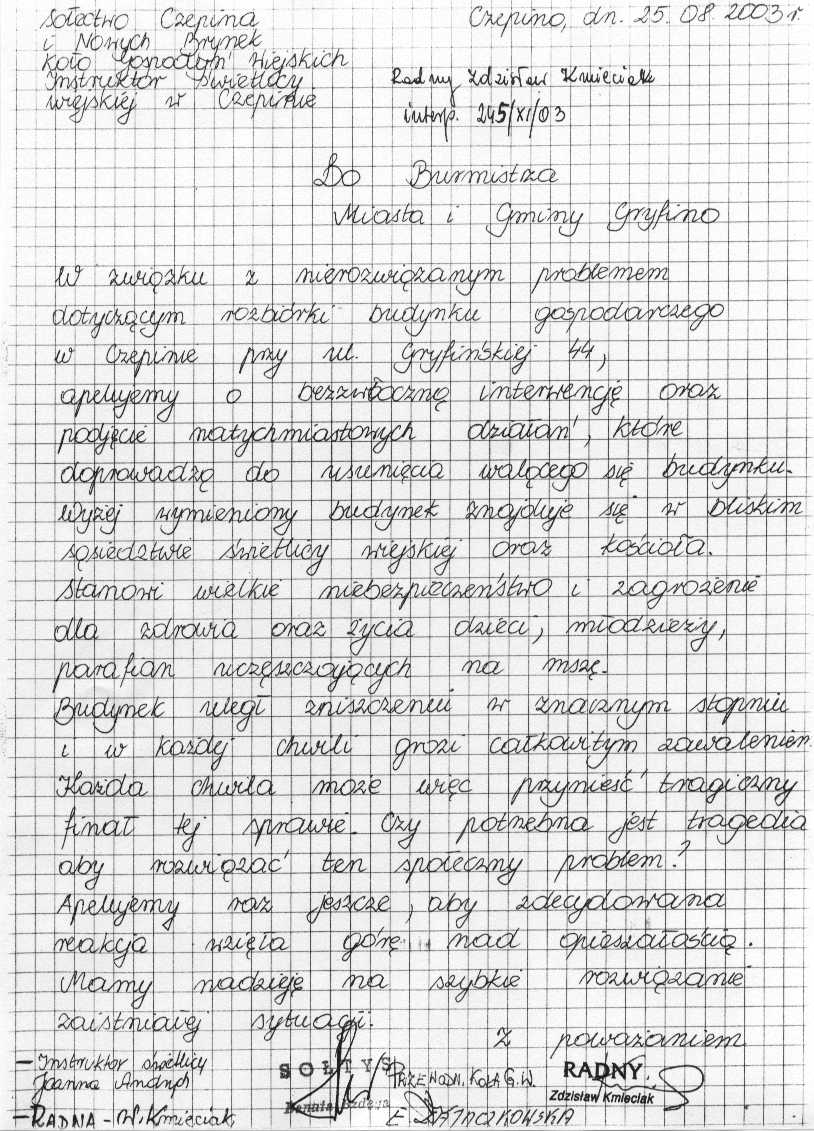 Sołectwo Czepina
i Nowych Brynek
Koło Gospodyń Wiejskich
Instruktor Świetlicy
wiejskiej w Czepinie
Czepino, dn. 25.08.2003 r.
Radny Zdzisław Kmieciak
interp. 245/XI/03
Do Burmistrza
Miasta i Gminy Gryfino
W związku z nierozwiązanym problemem
dotyczącym rozbiórki budynku gospodarczego
w Czepinie przy ul. Gryfińskiej 44,
apelujemy o bezzwłoczną interwencję oraz
podjęcie natychmiastowych działań, które
doprowadzą do usunięcia walącego się budynku.
Wyżej wymieniony budynek znajduje się w bliskim
sąsiedztwie świetlicy wiejskiej oraz kościoła.
Stanowi wielkie niebezpieczeństwo i zagrożenie
dla zdrowia oraz życia dzieci, młodzieży,
parafian uczęszczających na mszę.
Budynek uległ zniszczeniu w znacznym stopniu
i w każdej chwili grozi całkowitym zawaleniem.
Każda chwila może więc przynieść tragiczny
finał tej sprawie. Czy potrzebna jest tragedia
aby rozwiązać ten społeczny problem?
Apelujemy raz jeszcze, aby zdecydowana
reakcja wzięła górę nad opieszałością.
Mamy nadzieję na szybkie rozwiązanie
zaistniałej sytuacji.
Z poważaniem
- Instruktor świetlicy
Joanna
- RADNA - W. Kmieciak
SOŁTYS
Danuta
PRZEWODN. KOŁA G.W.
RADNY
Zdzisław Kmieciak